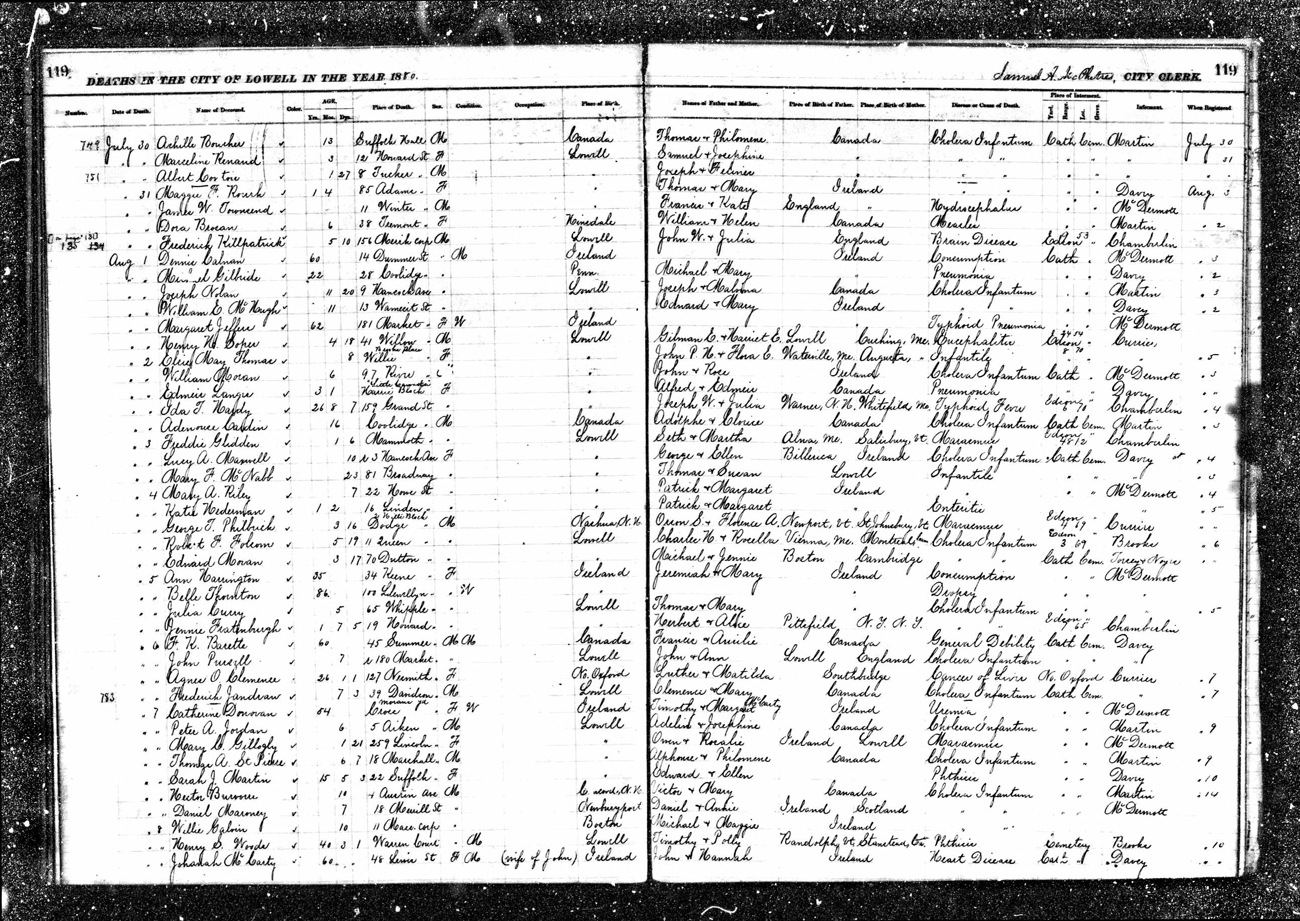 119 DEATHS IN THE CITY OF LOWELL IN THE YEAR 1880. CITY CLERK. 119
Number. Date of Death. Name of Deceased. Color. AGE. Yrs. Mos. Dys. Place of Death. Sex. Condition. Occupation. Place of Birth. Names of Father and Mother. Place of Birth of Father. Place of Birth of Mother. Disease or Cause of Death. Place of Interment. Yard. Range. Lot. Grave. Informant. When Registered
749 July 30 Achille Boucher 13 Suffolk Hall M Canada Thomas & Philomene Canada Cholera Infantum Cath Cem. Martin July 30
" " Marceline Renaud 3 12 Howard St F Lowell Samuel & Josephine " " " " " 31
751 " " Albert 1 27 8 Tucker M " Joseph &
" 31 Maggie F. Rourk 1 4 85 Adams F " Thomas & Mary Ireland " " Davey Aug. 3
" " James W. Townsend 11 Winter M " Francis & Kate England " Hydrocephalus " " McDermott
" " Dora 6 38 Tremont F Hinsdale William & Helen Canada Measles " " Martin " 2
" " Frederick Killpatrick 5 10 156 Merih corp M Lowell John W. & Julia England Brain Disease Edson 53 Chamberlin
Aug 1 Dennis Calnan 60 14 Dummer St M Ireland Ireland Consumption Cath McDermott " 3
" " Gilbride 22 28 Coolidge Penn. Michael & Mary " Pneumonia " " Davey " 2
" " Joseph Nolan 11 20 9 Hancock Ave Lowell Joseph & Canada Cholera Infantum " " Martin " 3
" " William E. McHugh 11 13 Wamesit St " Edward & Mary Ireland " " " Davey " 2
" " Margaret Jeffers 62 181 Market F W Ireland Typhoid Pneumonia " " McDermott
" " Henry H. Soper 4 18 41 Willow M Lowell Gilman E. & Harriet E. Lowell Cushing, Me. Encephalitis Edson Currier
" 2 Elsie May Thomas 8 Willie F " John P. N. & Flora E. Waterville, Me. Augusta " Infantile " 5
" " William Moran 6 97 River " John & Rose Ireland Cholera Infantum Cath McDermott " 3
" " Edmeir Langre 3 1 Harris Block F " Alfred & Edmeir Canada Pneumonia " " Davey " "
" " Ida T. Hardy 26 8 7 159 Grand St " Joseph W. & Julia Warner, N. H. Whitefield, Me Typhoid Fever Edson 70 Chamberlin " 4
" " Coolidge M Canada Adolphe & Canada Cholera Infantum Cath Cem Martin " 3
" 3 Freddie Glidden 1 6 Mammoth Lowell Seth & Martha Alna Me. Salisbury, Vt. Marasmus Edson Chamberlin
" " Lucy A. Maxwell 10 Hancock Ave F " George & Ellen Billerica Ireland Cholera Infantum Cath Cem. Davey " 4
" " Mary F. McNabb 23 81 Broadway " Thomas & Susan Lowell Infantile " " " " 3
" 4 Mary A. Riley 7 22 Howe St " Patrick & Margaret Ireland " " " McDermott " 4
" " Katie Hederman 1 2 16 Linden " Patrick & Margaret " Enteritis " " " " 5
" " George T. Philbrick 3 16 Dodge M Nashua, N. H. Orson S. & Florence A. Newport, Vt. St Johnsbury, Vt. Marasmus Edson 69 Currier
" " Robert F. Folsom 5 19 11 Queen " Lowell Charles H. & Rosella Vienna, Me. Montreal Can Cholera Infantum Edson 3 69 Brooks " 6
" " Edward Moran 3 17 70 Dutton " " Michael & Jennie Boston Cambridge " " Cath Cem.
" 5 Ann Harrington 35 34 Keene F Ireland Jeremiah & Mary Ireland Consumption " " McDermott
" " Belle Thornton 86 100 Llewellyn W " " Dropsy
" " Julia Curry 5 65 Whipple Lowell Thomas & Mary " Cholera Infantum " " " 5
" " Jennie 1 7 5 19 Howard " Herbert & Alice Pittsfield N. Y. N. Y. Edson 65 Chamberlin
" 6 F. K. Barette 60 45 Summer M M Canada Francis & Canada General Debility Cath Cem. Davey
" " John Pursell 7 180 Market " Lowell John & Ann Lowell England Cholera Infantum " "
" " Agnes O. Clemence 26 1 1 127 Nesmith F No. Oxford Luther & Matilda Southbridge Cancer of Liver No. Oxford Currier " 7
783 " " Frederick Jandraw 7 3 39 Davidson M Lowell Clemence & Mary Canada Cholera Infantum Cath Cem. " 7
" 7 Catherine Donovan 54 Cross F W Ireland Timothy & Margaret McCarty Ireland Uremia " " McDermott
" " Peter A. Jordan 6 5 Aiken M Lowell & Josephine Canada Cholera Infantum " " Martin " 9
" " Mary C. Gillogly 1 21 259 Lincoln F " Owen & Rosalie Ireland Lowell Marasmus " " McDermott
" " Thomas A. St Pierre 6 7 18 Marshall M " Alphonse & Philomene Canada Cholera Infantum " " Martin " 9
" " Sarah J. Martin 15 5 3 22 Suffolk F " Edward & Ellen Phthisis " " Davey " 10
" " Hector 10 4 Austin Ave M Concord, N. H. Victor & Mary Canada Cholera Infantum " " Martin " 14
" " Daniel Maroney 7 18 Merrill St " Newburyport Daniel & Annie Ireland Scotland " " " McDermott
" 8 Willie Galvin 10 11 Mass. corp Boston Michael & Maggie Ireland " " "
" " Henry S. Woods 40 3 1 Warren Court M Lowell Timothy & Polly Randolph, Vt. Stanstead, Ca. Phthisis Cemetery Brooks " 10
" " Johanah McCarty 60 48 St. F M (wife of John) Ireland John & Hannah Ireland Heart Disease Cath " Davey " "